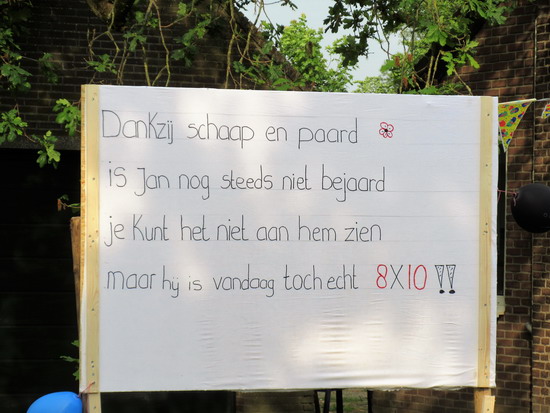 Dankzij schaap en paard
is Jan nog steeds niet bejaard
je Kunt het niet aan hem zien
maar hij is vandaag toch echt 8X10 !!